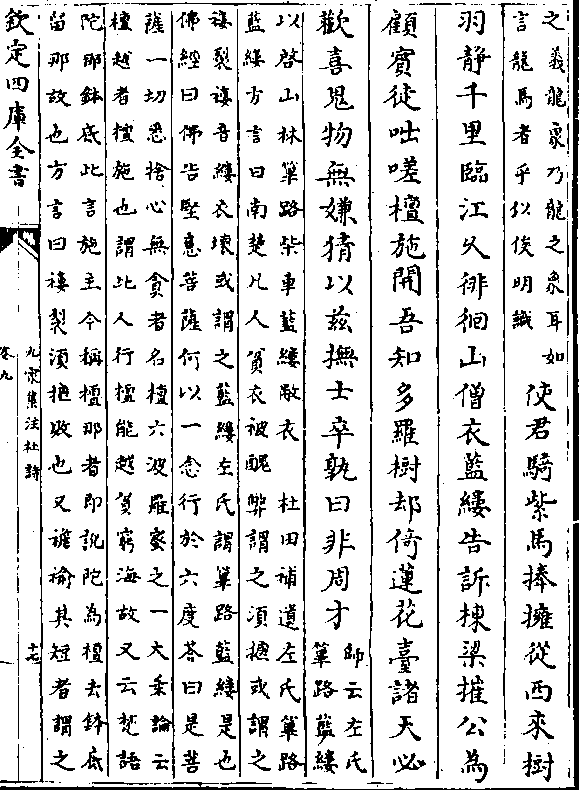 之義龍衆乃龍之象耳如
言龍馬者乎以俟明識
使君騎紫馬捧擁從西來樹
羽靜千里臨江久徘徊山僧衣藍縷告訴棟梁摧公為
顧賓徒咄嗟檀施開吾知多羅樹却倚蓮花臺諸天必
歡喜鬼物無嫌猜以兹撫士卒孰曰非周才
師云左氏
篳路藍縷
以啓山林篳路柴車藍縷敝衣 杜田補遺左氏篳路
藍縷方言曰南楚凡人貧衣被醜弊謂之須或謂之
褸裂褸吾縷衣壊或謂之藍縷左氏謂篳路藍縷是也
佛經曰佛告堅意菩薩何以一念行於六度荅曰是菩
薩一切悉捨心無貪者名檀六波羅蜜之一大乘論云
檀越者檀施也謂此人行檀能越貧窮海故又云梵語
陀那鉢底此言施主今稱檀那者即訛陀為檀去鉢底
留那故也方言曰褸裂須敗也又襜褕其短者謂之
欽定四庫全書
九家集注杜詩
卷九
十七